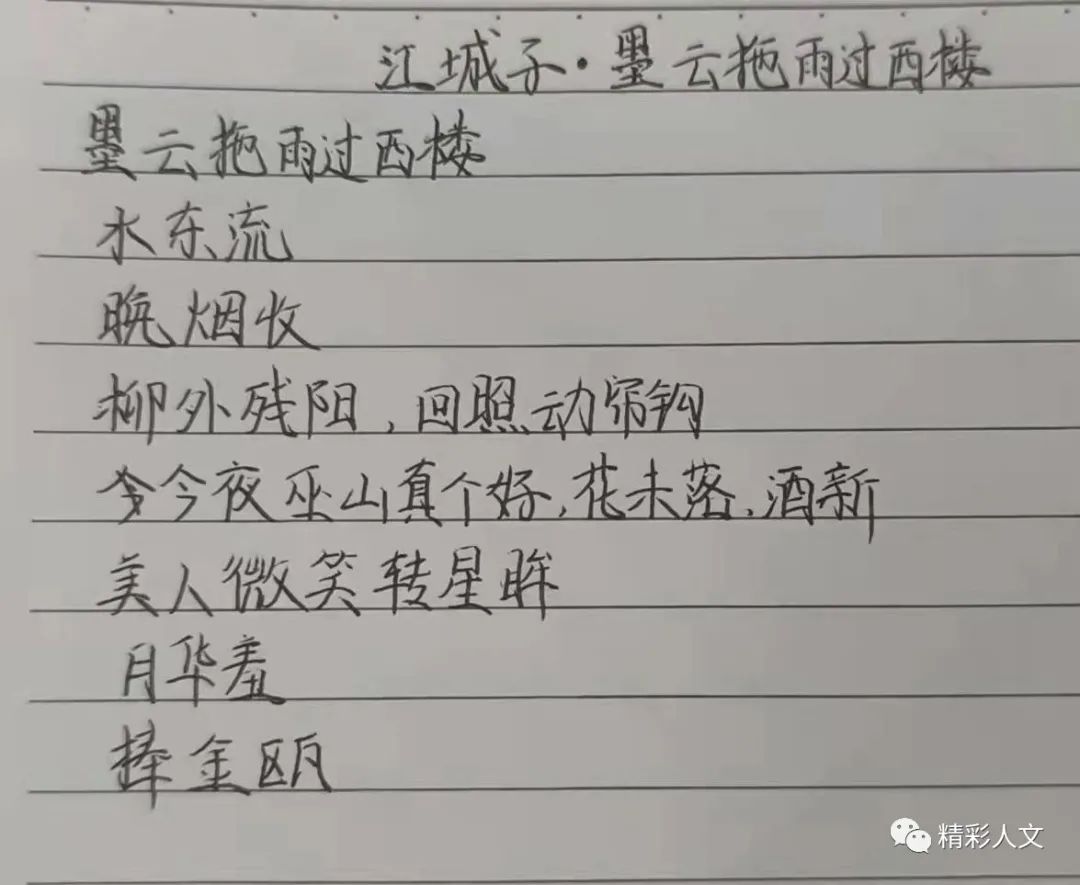 江城子·墨云拖雨过西楼
墨云拖雨过西楼
水东流
晚烟收
柳外残阳,回照动帘钩
今今夜巫山真个好,花未落,酒新
美人微笑转星眸
月华羞
捧金瓯
精彩人文